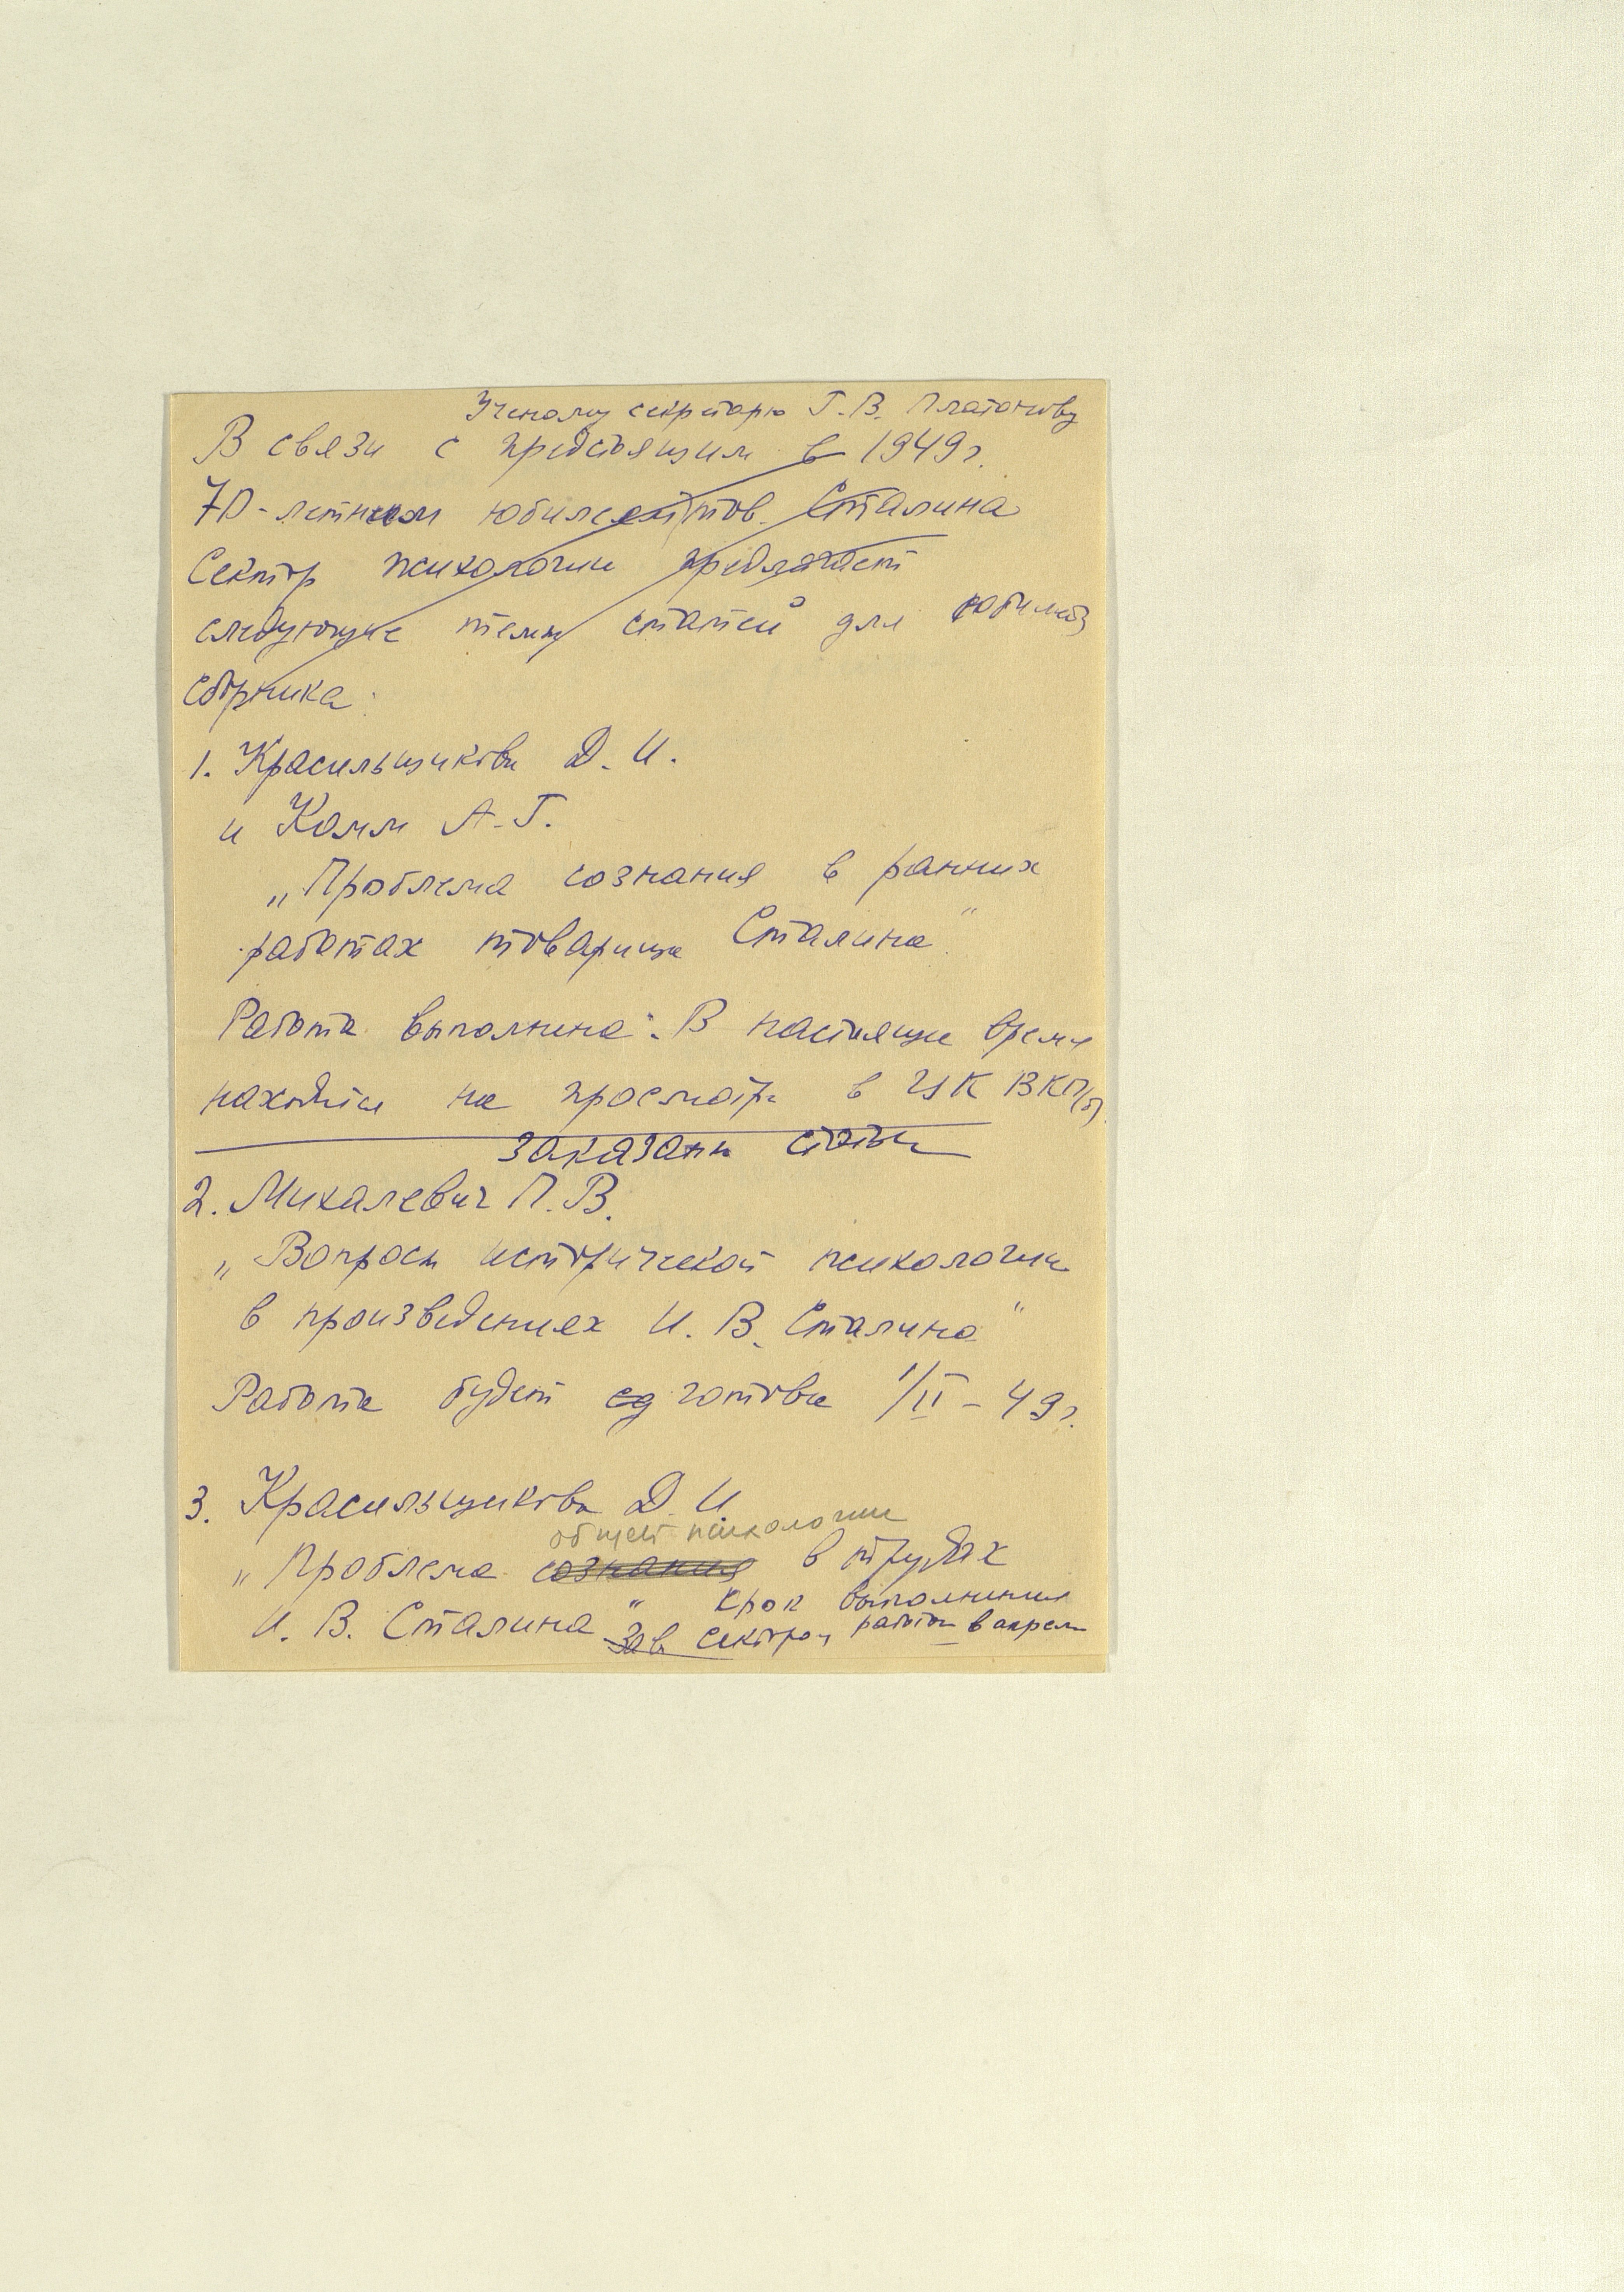 Ученому секретарю Г. В. Платонову
В связи с предстоящим в 1949 г.
70-летним юбилеем тов. Сталина
Сектор психологии предлагает
следующие темы статей для юбилейн
сборника:
1. Красильщикова Д. И.
и Комм А. Г.
„Проблема сознания в ранних
работах товарища Сталина"
Работа выполнена. В настоящее время
находится на просмотре в ЦК ВКП/б/
Заказаны статьи
2. Михалевич П. В.
„Вопросы исторической психологии
в произведениях И. В. Сталина"
Работа будет сд готова 1/II – 49 г.
3. Красильщикова Д. И.
общей психологии
„Проблема сознания в трудах
И. В. Сталина" Срок выполнения
Зав. сектором работы в апреле